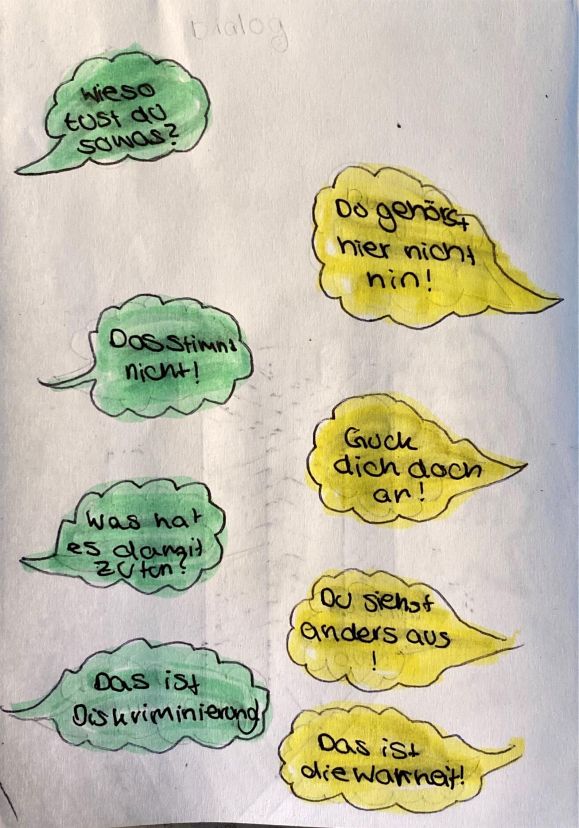 Dialog
Wieso
tust du
sowas?
Du gehörst
hier nicht
hin!
Das stimmt
nicht!
Guck
dich doch
an!
Was hat
es damit
zu tun?
Du siehst
anders aus
!
Das ist
Diskriminierung
Das ist
die Warheit!